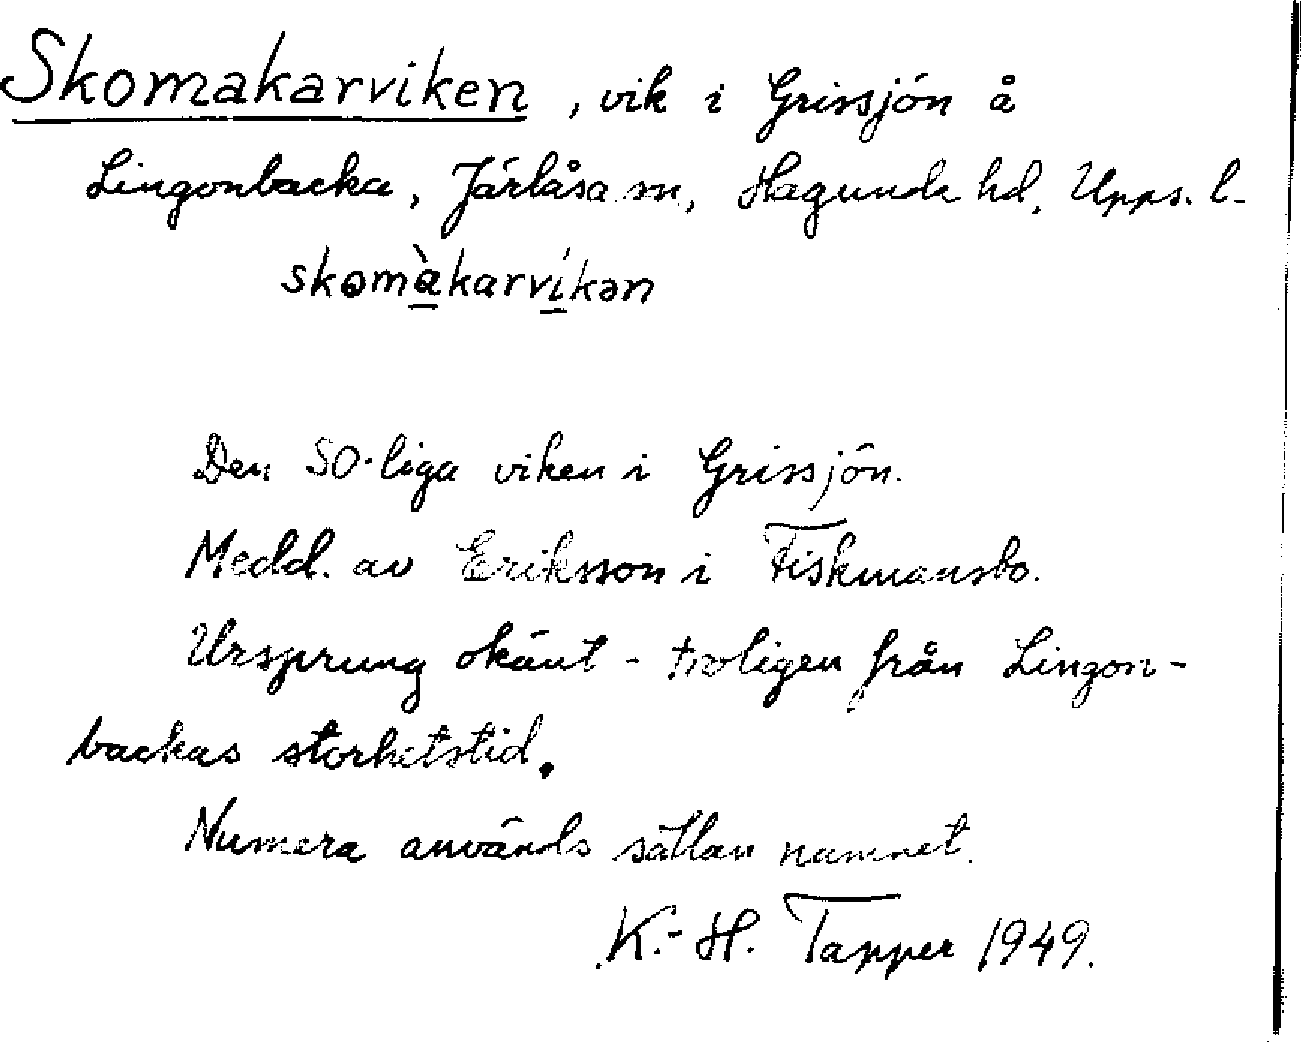 Skomakarviken, vik i Grissjön å
Lingonbacka, Järlåsa sn, Hagunda hd, Upps. l.
skomàkarvíkən
Den SO-liga viken i Grissjön.
Medd. av Eriksson i Fiskmansbo.
Ursprung okänt - troligen från Lingon-
backas storhetstid.
Numera används sällan namnet.
K.-H. Tapper 1949.